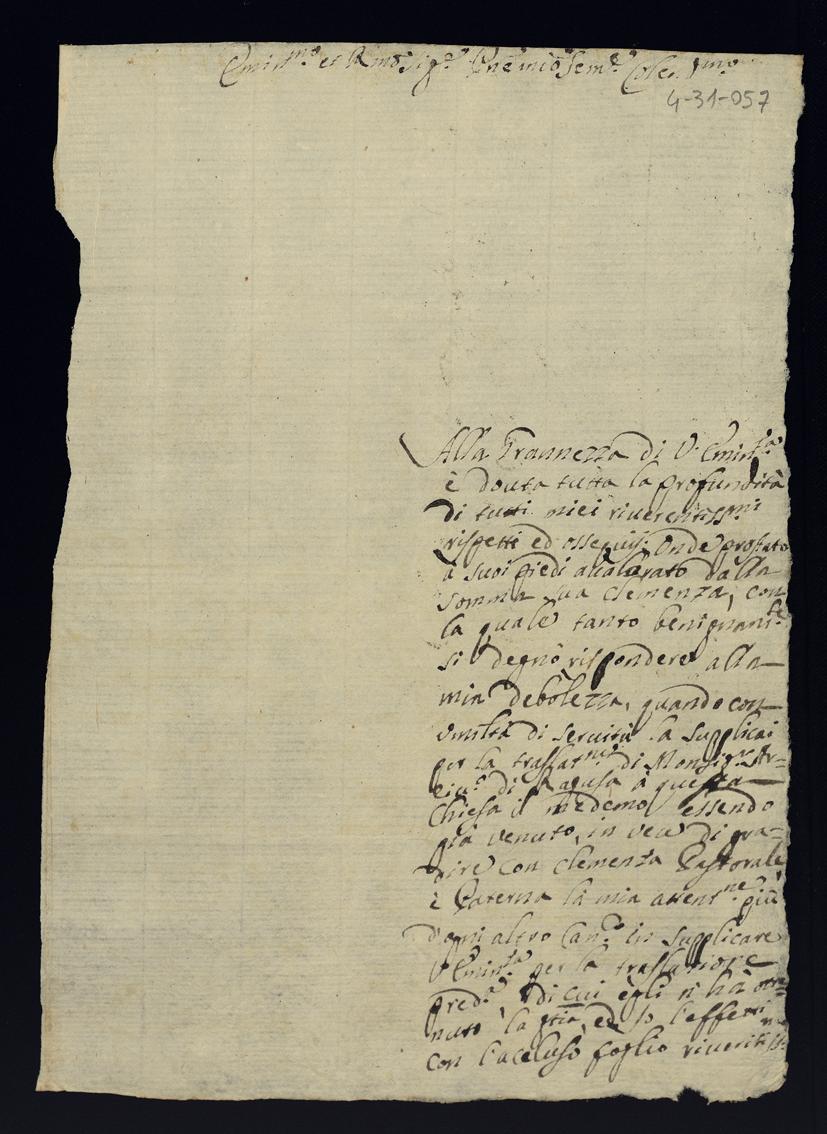 Emin.mo et R.mo Sig.e P̃ne mio Sem.e Colen.mo
4-31-057
Alla Grannezza di V. Emin.za
è douta tutta la profundità
di tutti miei riverentiss.mi
rispetti ed ossequij. Onde prostato
a suoi piedi avalorato dalla
somma sua clemenza, con
la quale tanto benignam.te
si degnò rispondere alla
mia debolezza, quando con
umiltà di servitù la supplicai
per la traslat.ne di Monsig.r Ar=
civ.o di Ragusa à questa
Chiesa il medemo essendo
già venuto, in vece di gra=
dire con clemenza Pastorale
è Paterna la mia attent.ne più
d'ogni altro Can.co in supplicare
V. Emin.za per la traslazione
pred.a, di cui egli n'hà otte=
nuto la gtia, ed io l'effetti
con l'acceluso foglio riveritiss.mo